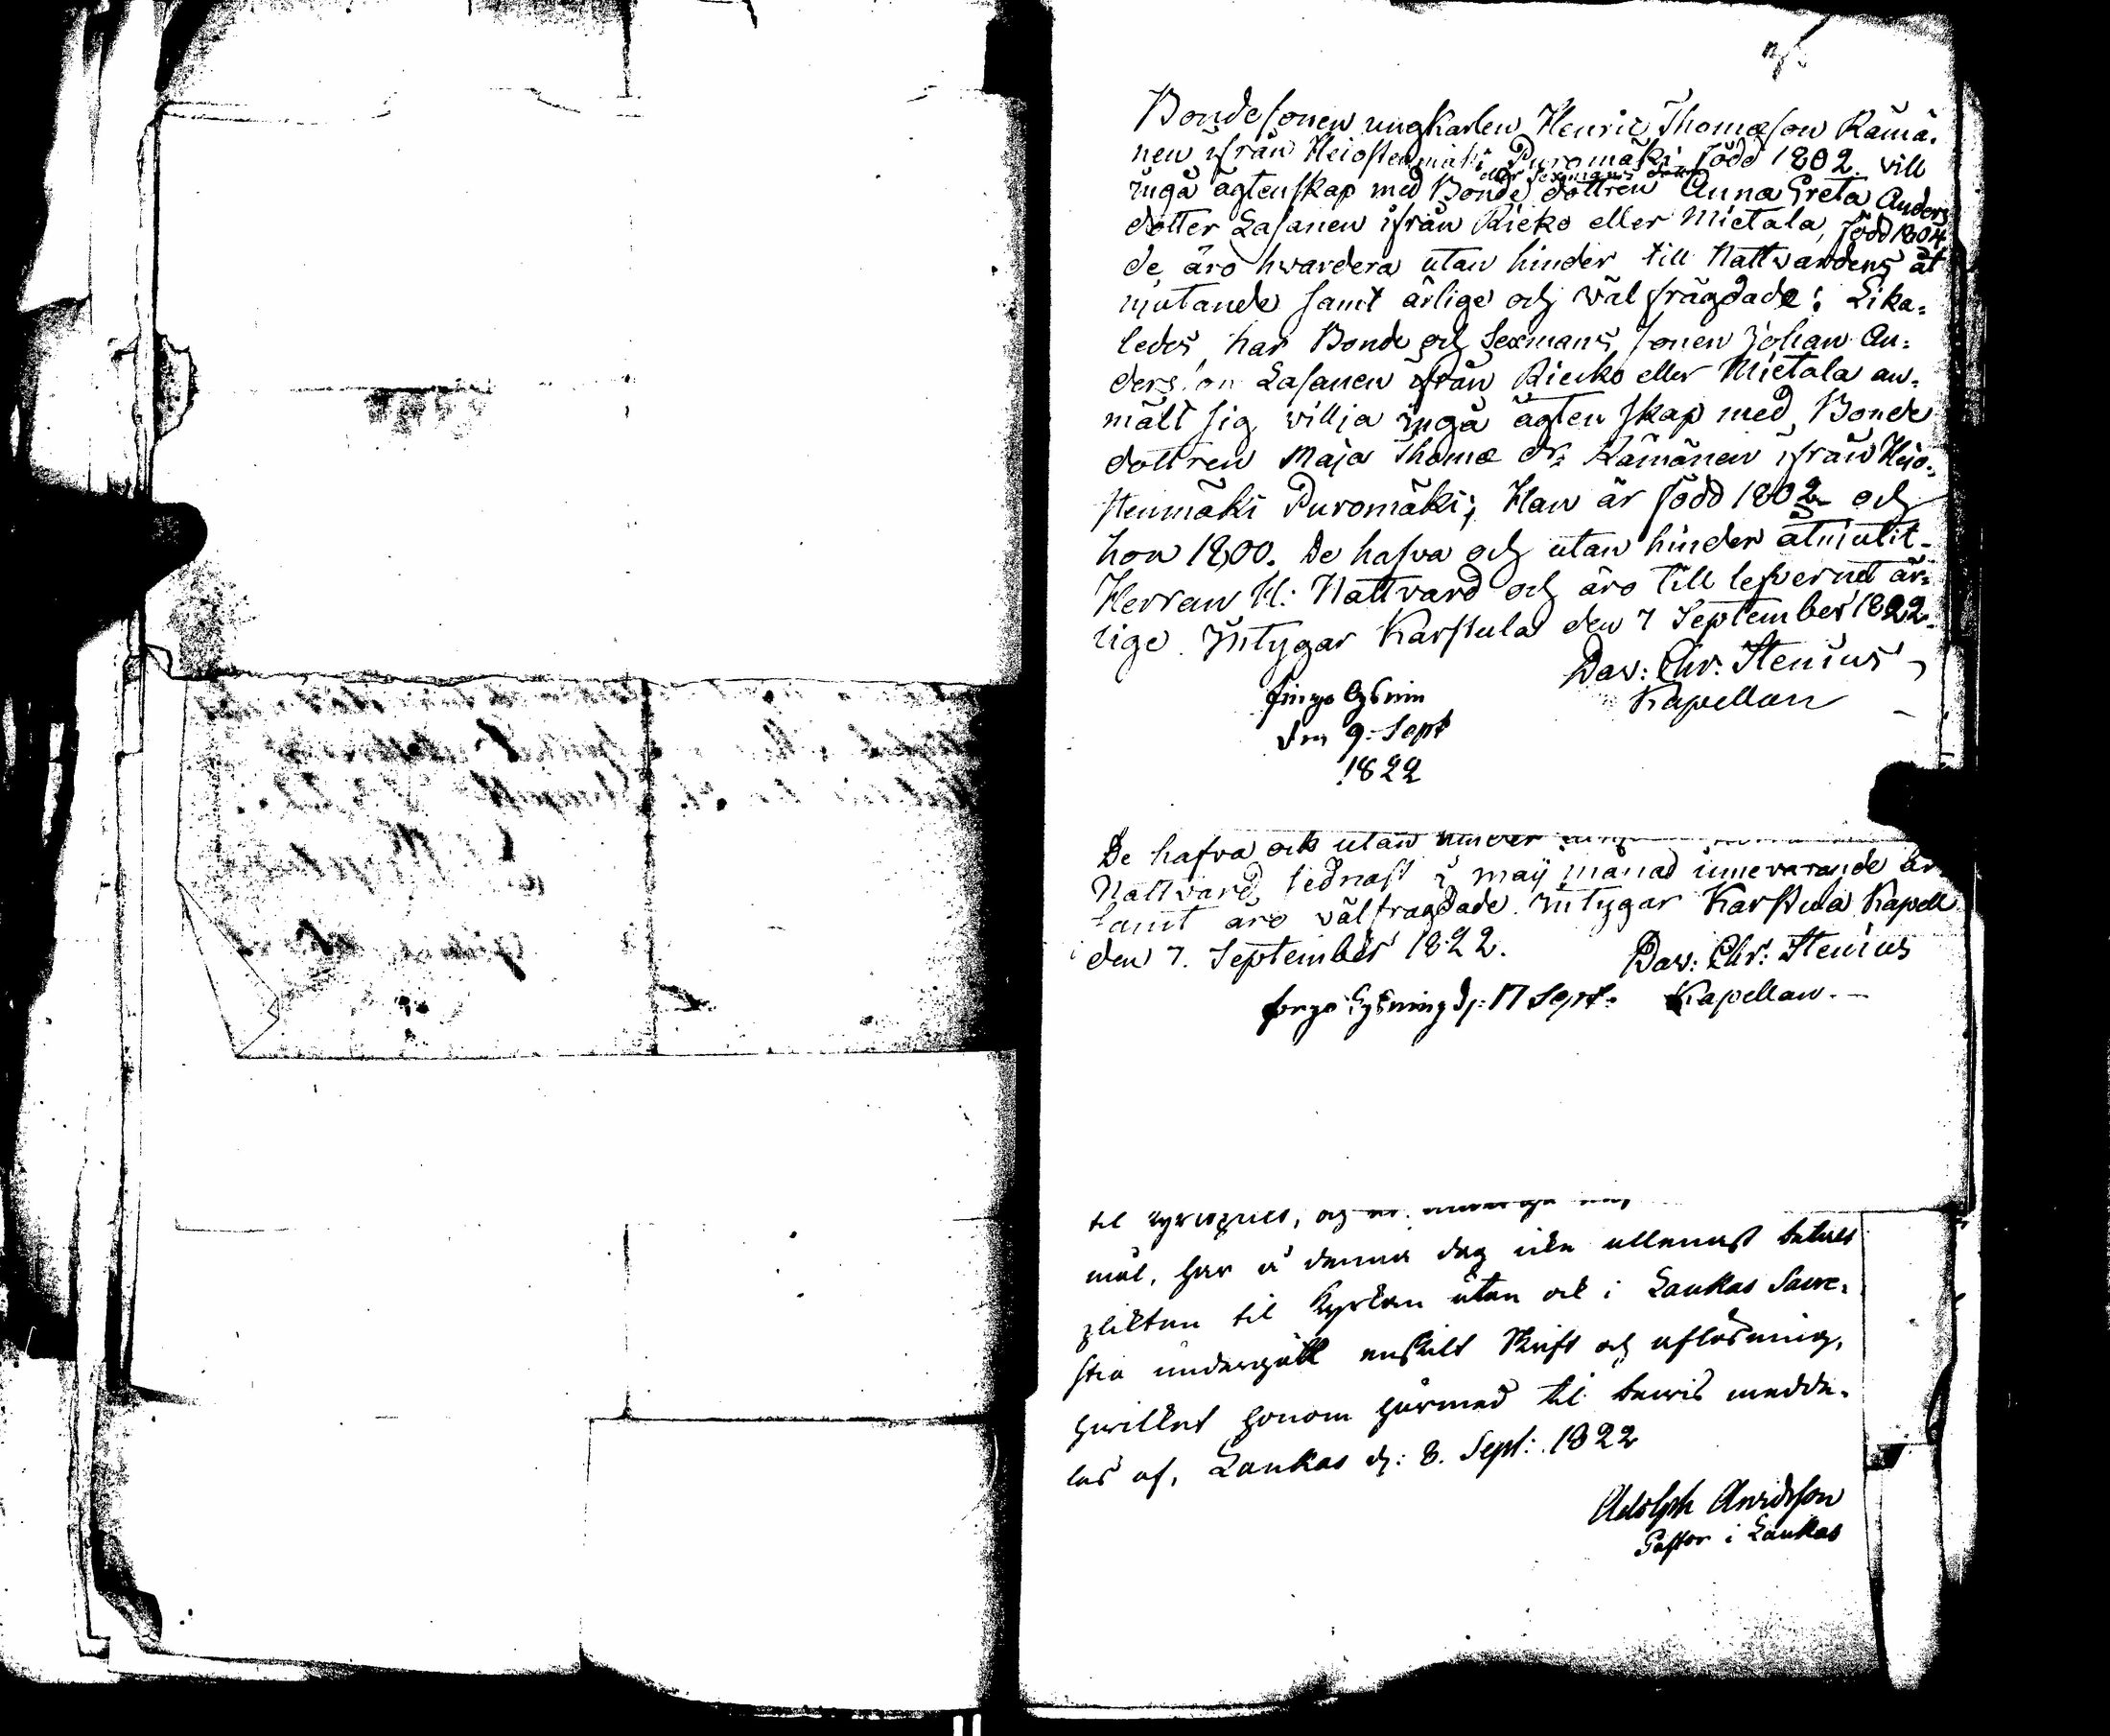 Bondesonen ungkarlen Henric Thomæson Kämä-
nen ifrån Heiostenmäki Puromäki född 1802. vill
ingå ägtenskap med Bonde dottren Anna Greta Anders
dotter Lasanen ifrån Rieko eller Mietala, född 1804
de äro hvardera utan hinder till Nattvardens åt
njutande samt ärlige och väl frägdade: Lika-
ledes har Bonde och Sexmans sonen Johan An-
derson Lasanen ifrån Riecko eller Mietala an-
mält sig villja ingå ägtenskap med Bonde
dottren Maja Thomæ dr. Kämänen ifrån Heio-
stenmäki Puromäki; Han är född 1802 och
hon 1800. De hafva och utan hinder åtniutit
Herran H: Nattvard och äro till lefvernet är-
lige. Intygar Karstula den 7 September 1822.
Dav: Chr: Stenius
Kapellan
den 9. Sept
1822
De hafva ock utan hinder
Nattvard sednast i maij månad innevarande år
samt äro välfragdade. Intygar Karstula Kapell
den 7. September 1822.
Dav: Chr: Stenius
Lysning d: 17 Sept. Kapellan.
til
mål, har i denna dag icke allenast betalt
plikten til Kyrkan utan ock i Laukas Sacre-
stia undergått enskilt Skrift och aflösning,
hvilket honom härmed til bewis medde-
las af, Laukas d: 8. Sept: 1822
Adolph Arvidsson
Pastor i Laukas